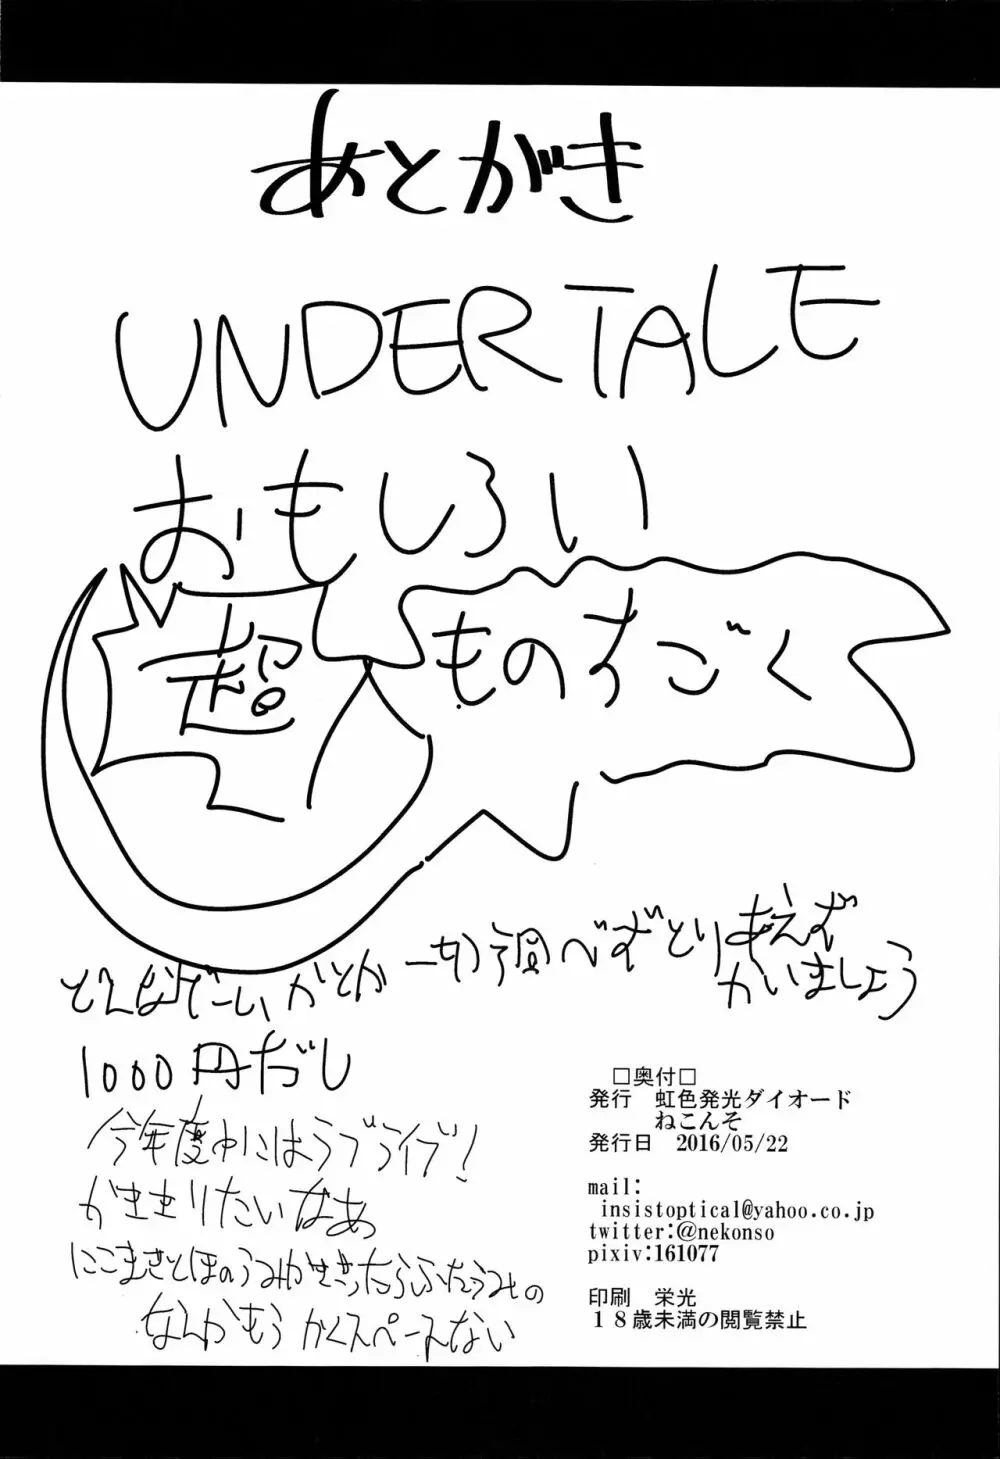 あとがき
UNDERTALE
おもしろい
超
ものすごく
どんなゲームかとか一切調べずとりあえず
かいましょう
1000円だし
今年度中にはラブライブ！
かききりたいなあ
にこまきとほのうみがかききったらふたうみの
なんかもうかくスペースない
□奥付□
発行　虹色発光ダイオード
ねこんそ
発行日　2016/05/22
mail:
insistoptical@yahoo.co.jp
twitter:@nekonso
pixiv:161077
印刷　栄光
１８歳未満の閲覧禁止